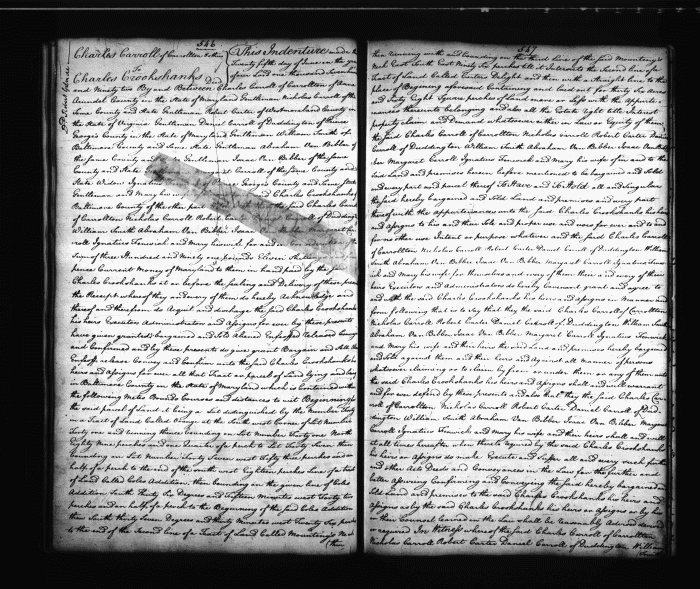 546
Charles Carroll of Carrollton & others
To
Charles Crookshanks Deed
This Indenture made on the
Twenty fifth day of June in the year
of our Lord one thousand Seven
and Ninety two By and Between Charles Carroll of Carrollton of Ann
Arundel County in the State of Maryland Gentleman Nicholas Carroll of the
Same County and State Gentleman Robert Carter of Westmoreland County in
the State of Virginia Gentleman Daniel Carroll of Duddington of Prince
Georges County in the State of Maryland Gentleman William Smith of
Baltimore County and Same State Gentleman Abraham Van Bibber of
the same County and Gentleman Isaac Van Bibber of the same
County and State Carroll of the Same County and
State Widow Ignatius Georges County and Same State
Gentleman and Mary his Charles Crookshanks
Baltimore County of the other part the said Charles Carroll
of Carrollton Nicholas Carroll Robert Carter of Duddington
William Smith Abraham Van Bibber Isaac Van Bibber Margaret
Carroll Ignatius Fenwick and Mary his wife for and in
Sum of three Hundred and Ninety six pounds Eleven Shillings
pence Current Money of Maryland to them in hand paid by the
Charles Crookshanks at or before the sealing and Delivery of these presents
the Receipt whereof they and every of them do hereby Acknowledge and
thereof and therefrom do Acquit and discharge the said Charles Crookshanks
his heirs Executors Administrators and Assigns for ever by these presents
have given granted bargained and Sold Aliened Enfeoffed Released Conveyed
and Confirmed and by these presents do give grant Bargain and Sell Alien
Enfeoff release Convey and Confirm unto the said Charles Crookshanks his
heirs and assigns for ever all that Tract or parcel of Land lying and being
in Baltimore County in the State of Maryland which is contained within
the following Metes Bounds Courses and distances to wit Beginning
the said parcel of Land it being a Lot distinguished by the Number Forty
in a Tract of Land Called at the South west Corner of Lot Number
Forty one and running thence bounding on Lot Number Forty one North
Eighty Nine perches and one Tenth of a perch to Lot Forty Seven then
bounding on Lot Number Forty Seven west Fifty three perches and an
half of a perch to the end of the South west Eighteen perches Line of a tract
of Land Called Coles Addition then bounding on the given line of Coles
Addition South Thirty Six Degrees and Fifteen Minutes west Forty two
perches and an half of a perch to the Beginning of the said Coles Addition
then South thirty Seven Degrees and thirty Minutes west Twenty Six perches
to the end of the Second Line of a Tract of Land Called Mountenays Neck
then
547
then running with and bounding on the third Line of the said Mountenays
Neck East South East Ninety Six perches till it Intersects the Second line of a
Tract of Land Called Carters Delight and then with a Straight line to the
place of Beginning aforesaid Containing and laid out for thirty Six Acres
and Sixty Eight Square perches of Land more or less with the Appurte
nances thereunto belonging and also all the Estate right title Interest
property claim and Demand whatsoever either in Law or Equity of them
the said Charles Carroll of Carrollton Nicholas Carroll Robert Carter Daniel
Carroll of Duddington William Smith Abraham Van Bibber Isaac Van Bib
ber Margaret Carroll Ignatius Fenwick and Mary his wife of in and to the
said Land and premises herein before mentioned to be bargained and Sold
and every part and parcel thereof To Have and To Hold all and Singular
the said hereby bargained and Sold Land and premises and every part
thereof with the appurtenances unto the said Charles Crookshanks his heirs
and assigns to his and their use and proper use and uses for ever and to and
for no other use Intent or purpose whatever and the said Charles Carroll
of Carrollton Nicholas Carroll Robert Carter Daniel Carroll of Duddington William
Smith Abraham Van Bibber Isaac Van Bibber Margaret Carroll Ignatius Fenw
ick and Mary his wife for themselves and every of them there and every of their
heirs Executors and administrators do hereby Covenant grant and agree to
and with the said Charles Crookshanks his heirs and assigns in Manner and
form following that is to say that they the said Charles Carroll of Carrollton
Nicholas Carroll Robert Carter Daniel Carroll of Duddington William Smith
Abraham Van Bibber Isaac Van Bibber Margaret Carroll Ignatius Fenwick
and Mary his wife and their heirs the said Land and premises hereby bargained
and Sold against them and their heirs and Against all manner of persons
whatsoever claiming or to claim by from or under them or any of them unto
the said Charles Crookshanks his heirs and assigns Shall and will warrant
and for ever defend by these presents and also that they the said Charles Car
roll of Carrollton Nicholas Carroll Robert Carter Daniel Carroll of Dud
dington William Smith Abraham Van Bibber Isaac Van Bibber Margaret
Carroll Ignatius Fenwick and Mary his wife and their heirs shall and will
at all times hereafter when thereto required by the said Charles Crookshanks
his heirs or assigns do make Execute and Suffer all and every such further
and other Acts Deeds and Conveyances in the Law for the further and
better assuring Confirming and Conveying the said hereby bargained and
Sold Land and premises to the said Charles Crookshanks his heirs and
assigns as by the said Charles Crookshanks his heirs or assigns or by his
or their Counsel learned in the Law shall be reasonably advised devised
or required In Witness whereof the said Charles Carroll of Carrollton
Nicholas Carroll Robert Carter Daniel Carroll of Duddington William